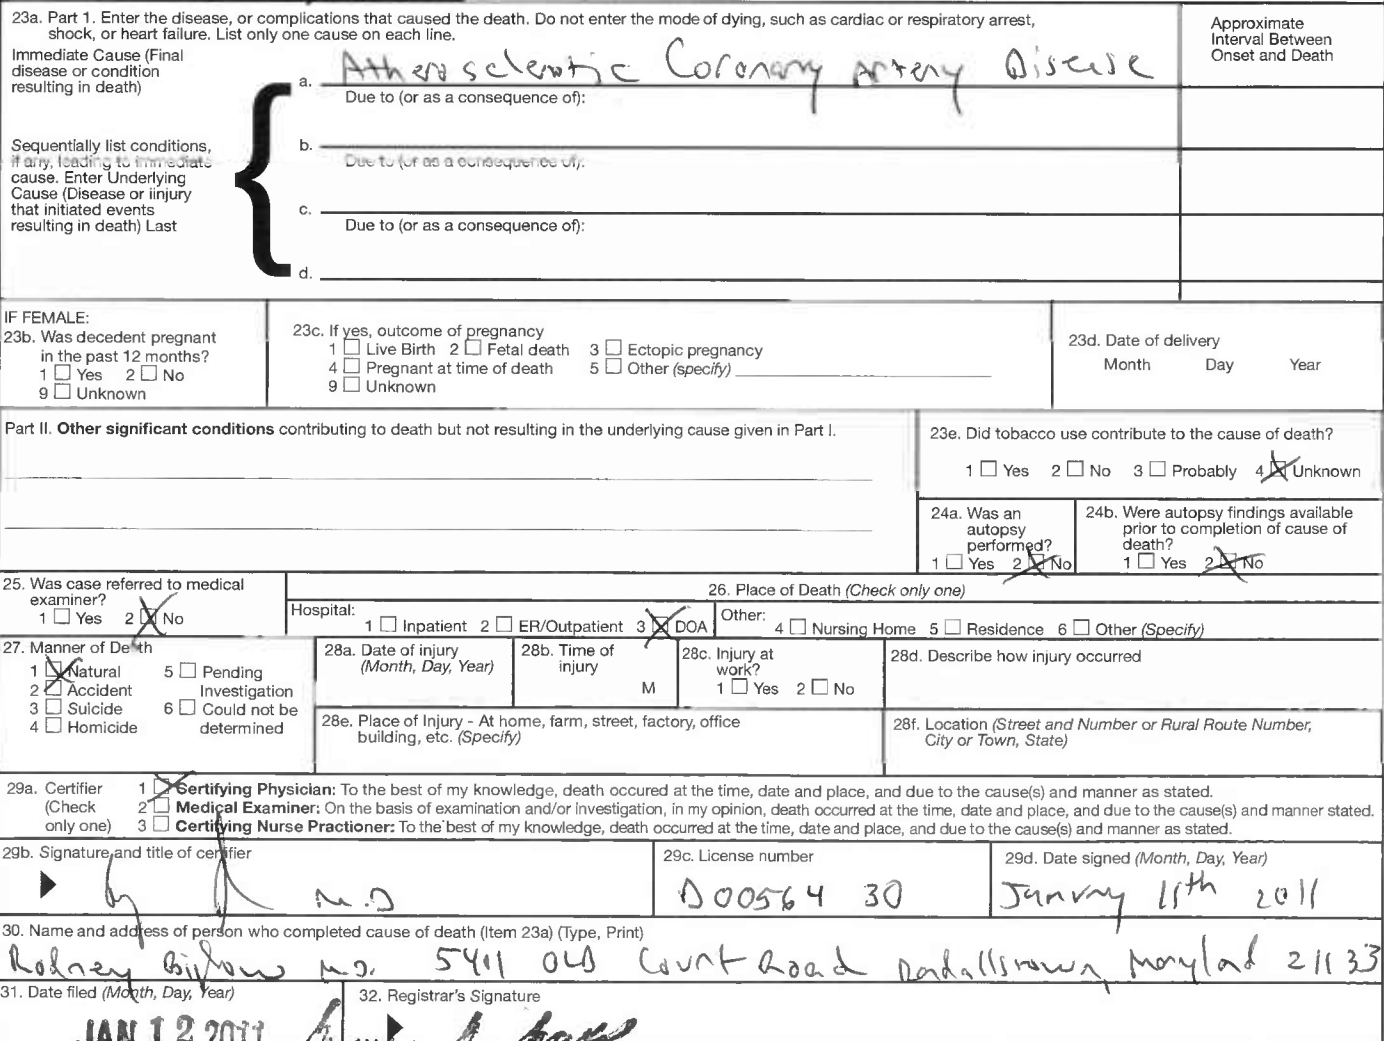 23a. Part 1. Enter the disease, or complications that caused the death. Do not enter the mode of dying, such as cardiac or respiratory arrest,
shock, or heart failure. List only one cause on each line.
Approximate
Interval Between
Onset and Death
Immediate Cause (Final
disease or condition
resulting in death)
a. Atherosclerotic Coronary Artery Disease
Due to (or as a consequence of):
Sequentially list conditions,
if any, leading to immediate
cause. Enter Underlying
Cause (Disease or iinjury
that initiated events
resulting in death) Last
b.
Due to (or as a consequence of):
c.
Due to (or as a consequence of):
d.
IF FEMALE:
23b. Was decedent pregnant
in the past 12 months?
1 ☐ Yes 2 ☐ No
9 ☐ Unknown
23c. If yes, outcome of pregnancy
1 ☐ Live Birth 2 ☐ Fetal death 3 ☐ Ectopic pregnancy
4 ☐ Pregnant at time of death 5 ☐ Other (specify)
9 ☐ Unknown
23d. Date of delivery
Month Day Year
Part II. Other significant conditions contributing to death but not resulting in the underlying cause given in Part I.
23e. Did tobacco use contribute to the cause of death?
1 ☐ Yes 2 ☐ No 3 ☐ Probably 4 ☒ Unknown
24a. Was an
autopsy
performed?
1 ☐ Yes 2 ☒ No
24b. Were autopsy findings available
prior to completion of cause of
death?
1 ☐ Yes 2 ☒ No
25. Was case referred to medical
examiner?
1 ☐ Yes 2 ☒ No
26. Place of Death (Check only one)
Hospital:
1 ☐ Inpatient 2 ☐ ER/Outpatient 3 ☒ DOA
Other:
4 ☐ Nursing Home 5 ☐ Residence 6 ☐ Other (Specify)
27. Manner of Death
1 ☒ Natural 5 ☐ Pending
2 ☐ Accident Investigation
3 ☐ Suicide 6 ☐ Could not be
4 ☐ Homicide determined
28a. Date of injury
(Month, Day, Year)
28b. Time of
injury
M
28c. Injury at
work?
1 ☐ Yes 2 ☐ No
28d. Describe how injury occurred
28e. Place of Injury - At home, farm, street, factory, office
building, etc. (Specify)
28f. Location (Street and Number or Rural Route Number,
City or Town, State)
29a. Certifier
(Check
only one)
1 ☒ Certifying Physician: To the best of my knowledge, death occured at the time, date and place, and due to the cause(s) and manner as stated.
2 ☐ Medical Examiner: On the basis of examination and/or investigation, in my opinion, death occurred at the time, date and place, and due to the cause(s) and manner stated.
3 ☐ Certifying Nurse Practioner: To the best of my knowledge, death occurred at the time, date and place, and due to the cause(s) and manner as stated.
29b. Signature and title of certifier
M.D
29c. License number
D00564 30
29d. Date signed (Month, Day, Year)
January 11th 2011
30. Name and address of person who completed cause of death (Item 23a) (Type, Print)
Rodney M.D. 5411 OLD Court Road Randallstown, Maryland 21133
31. Date filed (Month, Day, Year)
JAN 12 2011
32. Registrar's Signature